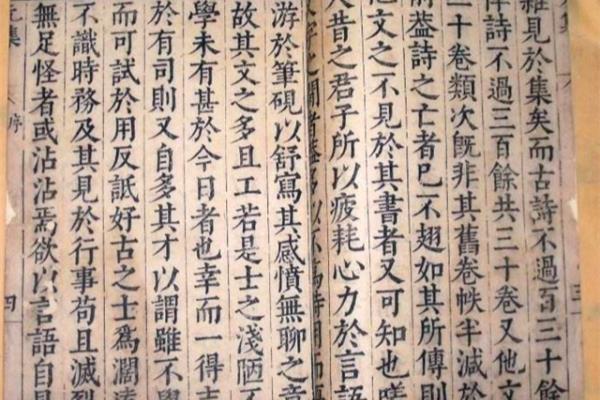 雜見於集矣而古詩不過百三十餘
律詩不過三百餘共三十卷又他文
三十卷類次既非其舊卷帙半減於
前葢詩之亡者已不翅如其所傳則
他文之不見於其書者又可知也嗟
昔之君子所以疲耗心力於言語
文字之間者葢多以不爲時用而
游於筆硯以舒寫其感憤無聊之意
故其文之多且工若是士之淺陋不
學未有甚於今日者也幸而一得志
於有司則又自多其才以謂雖不學
而可試於用反詆好古之士爲濶
不識時務及其見於行事苟且滅裂
無足怪者或沾沾焉欲以言語自見
元集 序 四